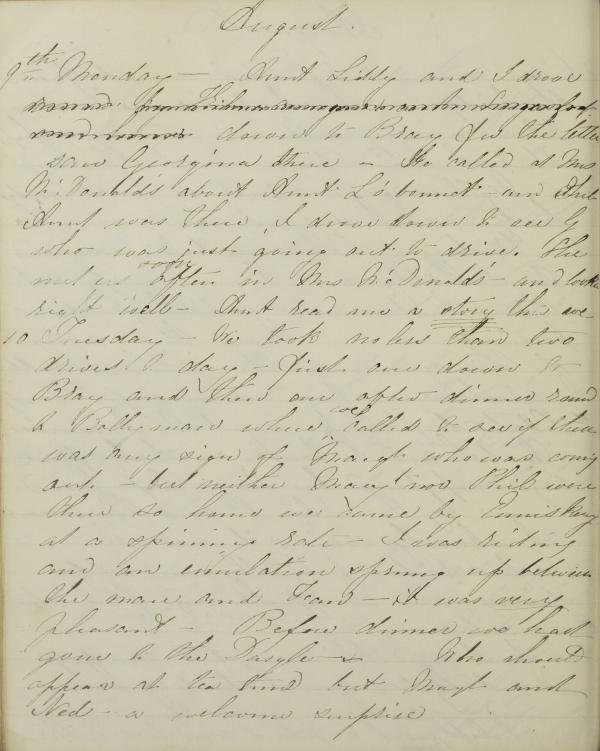 August.
9th Monday — Aunt Liddy and I drove
round
down to Bray for the letters
saw Georgina there — We called at Mrs
McDonald's about Aunt L's bonnet — and while
Aunt was there, I drove down to see G
who was just going out to drive. She
met us soon after in Mrs McDonald's — and looked
right well — Aunt read me a story this eve
10 Tuesday — We took no less than two
drives to day — first one down to
Bray and then one after dinner round
to Ballyman where we called to see if there
was any sign of Margt who was coming
out — but neither Margt nor Phil were
there so home we came by Enniskerry
at a spinning rate — I was riding
and an emulation sprung up between
the mare and Fan — it was very
pleasant — Before dinner we had
gone to the Dargle — Who should
appear at tea time but Margt and
Ned — a welcome surprise